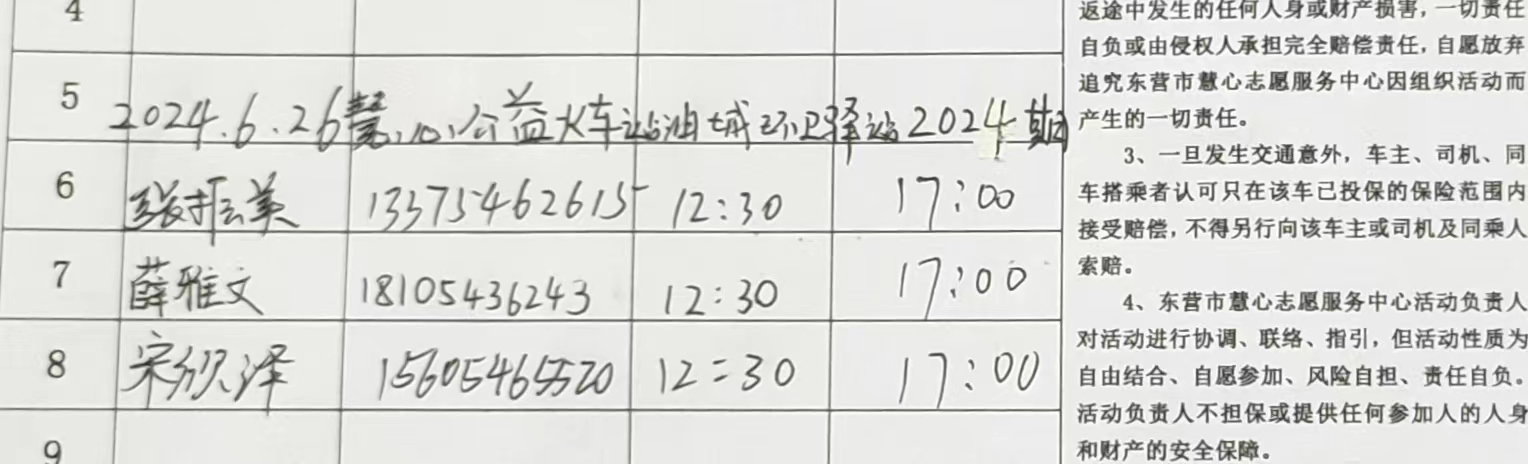 4
5 2024.6.26慧心公益火车站油城环卫驿站2024期
6 张振美 13375462615 12:30 17:00
7 薛雅文 18105436243 12:30 17:00
8 宋欣泽 15605465520 12:30 17:00
9
返途中发生的任何人身或财产损害,一切责任
自负或由侵权人承担完全赔偿责任,自愿放弃
追究东营市慧心志愿服务中心因组织活动而
产生的一切责任。
3、一旦发生交通意外,车主、司机、同
车搭乘者认可只在该车已投保的保险范围内
接受赔偿,不得另行向该车主或司机及同乘人
索赔。
4、东营市慧心志愿服务中心活动负责人
对活动进行协调、联络、指引,但活动性质为
自由结合、自愿参加、风险自担、责任自负。
活动负责人不担保或提供任何参加人的人身
和财产的安全保障。